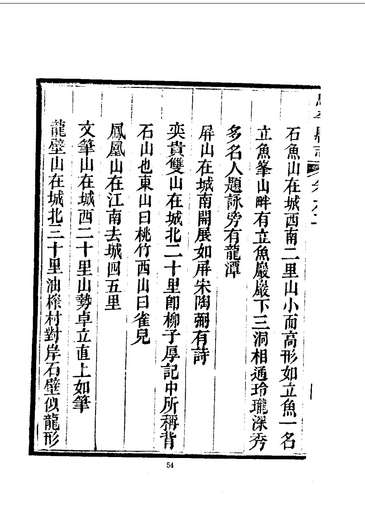 石魚山在城西南二里山小而高形如立魚一名
立魚峯山畔有立魚巖巖下三洞相通玲瓏深秀
多名人題詠旁有龍潭
屏山在城南開展如屏朱陶弼有詩
奕貴雙山在城北二十里卽柳子厚記中所稱背
石山也東山曰桃竹西山曰雀兒
鳳凰山在江南去城四五里
文筆山在城西二十里山勢卓立直上如筆
龍壁山在城北三十里油榨村對岸石壁似龍形
54